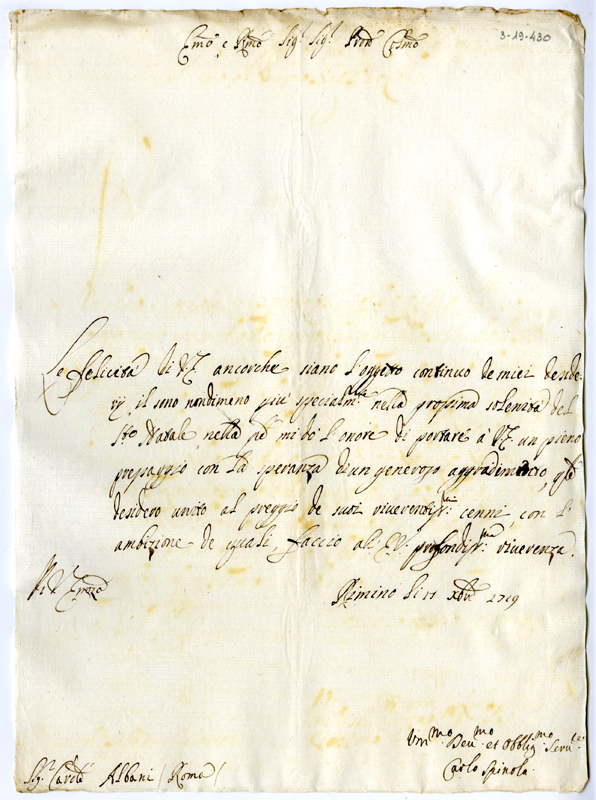 3-19-430
Emo e Rmo Sigr Sigr Prõn Colmo
Le felicità di V.E. ancorche siano l'oggetto continuo de miei deside-
rij, il sono nondimeno più specialmte nella prossima solenità del
Sto Natale, nella qle mi dò l'onore di portare à V.E. un pieno
presaggio con la speranza di un generoso aggradimento, qle
desidero unito al preggio de suoi riveritissmi cenni, con l'
ambizione de quali, faccio all'E.V. profondissma riverenza.
Di V. Emza
Rimino li 11 Xbre 1719
Ummo Devmo et Obbligmo Servre
Carlo Spinola
Sigr Cardle Albani (Roma)